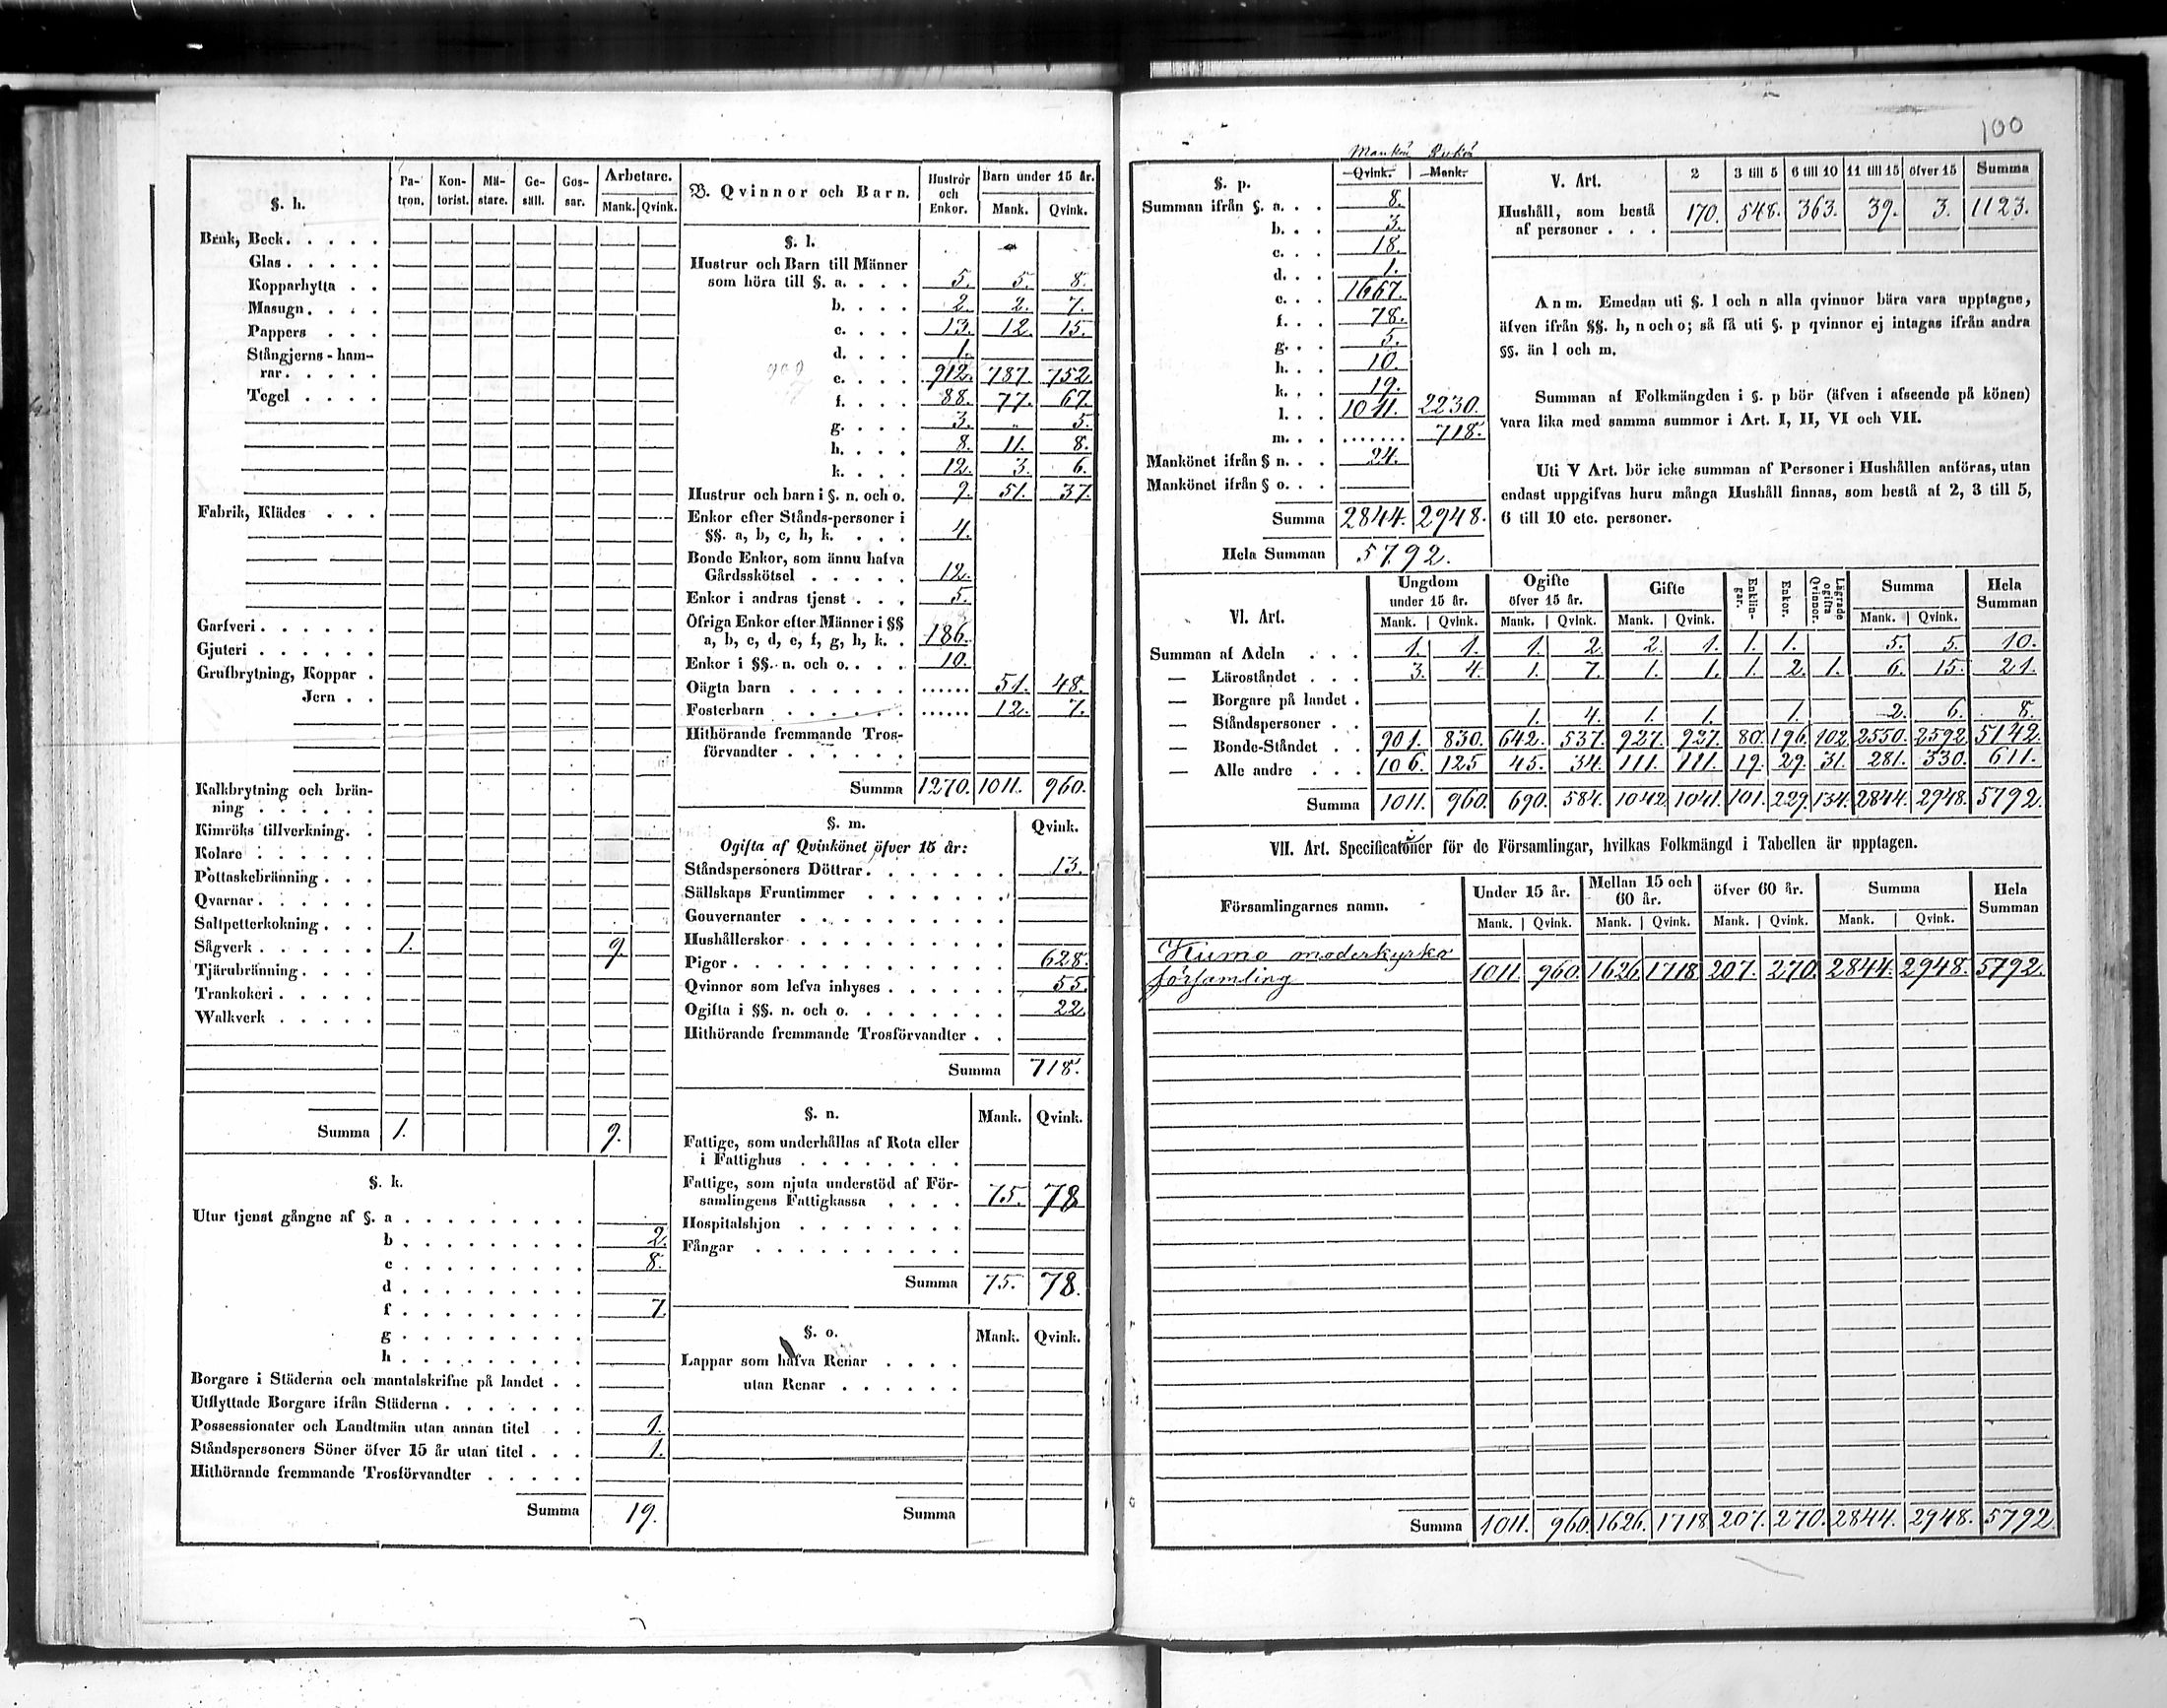 §. h.
Pa-
tron.
Kon-
torist.
Mä-
stare.
Ge-
säll.
Gos-
sar.
Arbetare.
Mank. Qvink.
Bruk, Beck . . . . .
Glas . . . . .
Kopparhytta . .
Masugn . . . .
Pappers . . .
Stångjerns-ham-
rar . . . . .
Tegel . . . .
Fabrik, Klädes . . .
Garfveri . . . . . .
Gjuteri . . . . . .
Grufbrytning, Koppar .
Jern . .
Kalkbrytning och brän-
ning . . . . . .
Kimröks tillverkning. .
Kolare . . . . . .
Pottaskebränning . . .
Qvarnar . . . . . .
Saltpetterkokning . . .
Sågverk . . . . . . 1. 9.
Tjärubränning . . . .
Trankokeri . . . . .
Walkverk . . . . .
Summa 1. 9.
§. k.
Utur tjenst gångne af §. a . . . . . . . . .
b . . . . . . . . . 2.
c . . . . . . . . . 8.
d . . . . . . . . .
f . . . . . . . . . 7.
g . . . . . . . . .
h . . . . . . . . .
Borgare i Städerna och mantalskrifne på landet . .
Utflyttade Borgare ifrån Städerna . . . . . . .
Possessionater och Landtmän utan annan titel . . 1.
Ståndspersoners Söner öfver 15 år utan titel . . . 1.
Hithörande fremmande Trosförvandter . . . . .
Summa 19.
B. Qvinnor och Barn.
Hustror
och
Enkor.
Barn under 15 år.
Mank. Qvink.
§. l.
Hustrur och Barn till Männer
som höra till §. a. . . . 5. 5. 8.
b. . . . 2. 2. 7.
c. . . . 13. 12. 15.
d. . . . 1.
e. . . . 912. 787. 752.
f. . . . 88. 77. 67.
g. . . . 3. „ 5.
h. . . . 8. 11. 8.
k. . . . 12. 3. 6.
Hustrur och barn i §. n. och o. 9. 51. 37.
Enkor efter Stånds-personer i
§§. a, b, c, h, k. . . . 4.
Bonde Enkor, som ännu hafva
Gårdsskötsel . . . . . 12.
Enkor i andras tjenst . . . 5.
Öfriga Enkor efter Männer i §§
a, b, c, d, e, f, g, h, k. . 186.
Enkor i §§. n. och o. . . . 10.
Oägta barn . . . . . . ...... 51. 48.
Fosterbarn . . . . . . ...... 12. 7.
Hithörande fremmande Tros-
förvandter . . . . . .
Summa 1270. 1011. 960.
§. m. Qvink.
Ogifta af Qvinkönet öfver 15 år:
Ståndspersoners Döttrar . . . . . . . 13.
Sällskaps Fruntimmer . . . . . . .
Gouvernanter . . . . . . . . . .
Hushållerskor . . . . . . . . . .
Pigor . . . . . . . . . . . . . 628.
Qvinnor som lefva inhyses . . . . . . 55.
Ogifta i §§. n. och o. . . . . . . . 22.
Hithörande fremmande Trosförvandter . .
Summa 718.
§. n. Mank. Qvink.
Fattige, som underhållas af Rota eller
i Fattighus . . . . . . . .
Fattige, som njuta understöd af För-
samlingens Fattigkassa . . . . 75. 78
Hospitalshjon . . . . . . . .
Fångar . . . . . . . . . .
Summa 75. 78.
§. o. Mank. Qvink.
Lappar som hafva Renar . . . .
utan Renar . . . . . .
Summa
100
Mankön Qvinkön
§. p. Qvink. Mank.
Summan ifrån §. a. . . 8.
b. . . 3.
c. . . 18.
d. . . 1.
e. . . 1667.
f. . . 78.
g. . . 5.
h. . . 10.
k. . . 19.
l. . . 1011. 2230.
m. . . ....... 718.
Mankönet ifrån § n. . . 24.
Mankönet ifrån § o. . .
Summa 2844. 2948.
Hela Summan 5792.
V. Art. 2 3 till 5 6 till 10 11 till 15 öfver 15 Summa
Hushåll, som bestå
af personer . . . 170. 548. 363. 39. 3. 1123.
Anm. Emedan uti §. l och n alla qvinnor böra vara upptagne,
äfven ifrån §§. h, n och o; så få uti §. p qvinnor ej intagas ifrån andra
§§. än l och m.
Summan af Folkmängden i §. p bör (äfven i afseende på könen)
vara lika med samma summor i Art. I, II, VI och VII.
Uti V Art. bör icke summan af Personer i Hushållen anföras, utan
endast uppgifvas huru många Hushåll finnas, som bestå af 2, 3 till 5,
6 till 10 etc. personer.
VI. Art.
Ungdom
under 15 år.
Ogifte
öfver 15 år.
Gifte
Enklin-
gar.
Enkor.
Lägrade
ogifta
Qvinnor.
Summa
Hela
Summan
Mank. Qvink. Mank. Qvink. Mank. Qvink. Mank. Qvink.
Summan af Adeln . . . 1. 1. 1. 2. 2. 1. 1. 1. 5. 5. 10.
— Läroståndet . . . 3. 4. 1. 7. 1. 1. 1. 2. 1. 6. 15. 21.
— Borgare på landet .
— Ståndspersoner . . 1. 4. 1. 1. 1. 2. 6. 8.
— Bonde-Ståndet . . 901. 830. 642. 537. 927. 927. 80. 196. 102. 2550. 2592. 5142.
— Alle andre . . . 106. 125 45. 34. 111. 111. 19. 29. 31. 281. 330. 611.
Summa 1011. 960. 690. 584. 1042. 1041. 101. 229. 134. 2844. 2948. 5792.
VII. Art. Specificationer för de Församlingar, hvilkas Folkmängd i Tabellen är upptagen.
Församlingarnes namn.
Under 15 år.
Mellan 15 och
60 år.
öfver 60 år.
Summa
Hela
Summan
Mank. Qvink. Mank. Qvink. Mank. Qvink. Mank. Qvink.
Kumo moderkyrko
församling 1011. 960. 1626. 1718. 207. 270. 2844. 2948. 5792.
Summa 1011. 960. 1626. 1718. 207. 270. 2844. 2948. 5792.